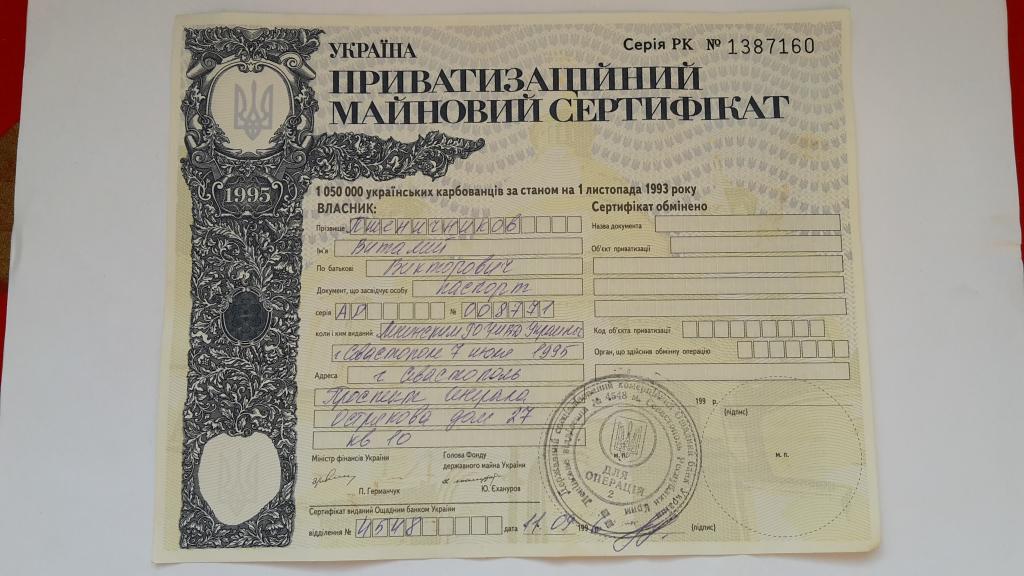 УКРАЇНА
Серія РК № 1387160
ПРИВАТИЗАЦІЙНИЙ
МАЙНОВИЙ СЕРТИФІКАТ
1995
1 050 000 українських карбованців за станом на 1 листопада 1993 року
ВЛАСНИК:
Прізвище Пшеничников
Ім'я Виталий
По батькові Викторович
Документ, що засвідчує особу паспорт
серія АР № 008771
коли і ким виданий Ленинским РО УМВД Украины
г Севастополе 7 июня 1995
Адреса г. Севастополь
Проспект Генерала
Острякова дом 27
кв 10
Міністр фінансів України
П. Германчук
Голова Фонду
державного майна України
Ю. Єхануров
Сертифікат виданий Ощадним банком України
відділення № 4548 дата 199 (підпис)
Сертифікат обмінено
Назва документа
Об'єкт приватизації
Код об'єкта приватизації
Орган, що здійснив обмінну операцію
199 р.
(підпис)
м. п.
м. п.
ДЛЯ
ОПЕРАЦІЙ
2